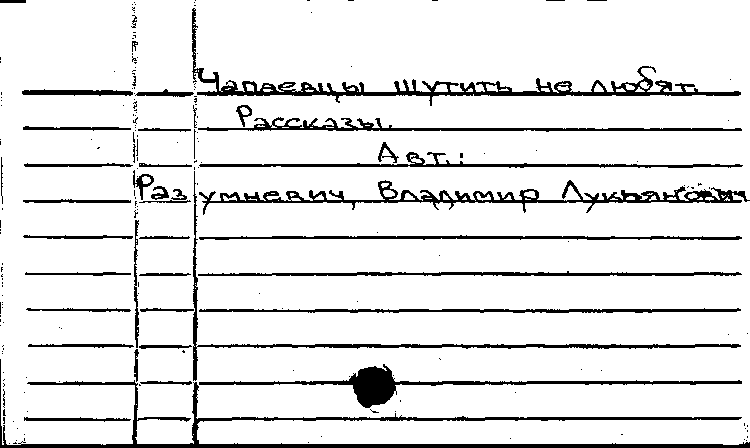 Чапаевцы шутить не любят.
Рассказы.
Авт.:
Разумневич, Владимир Лукьянович